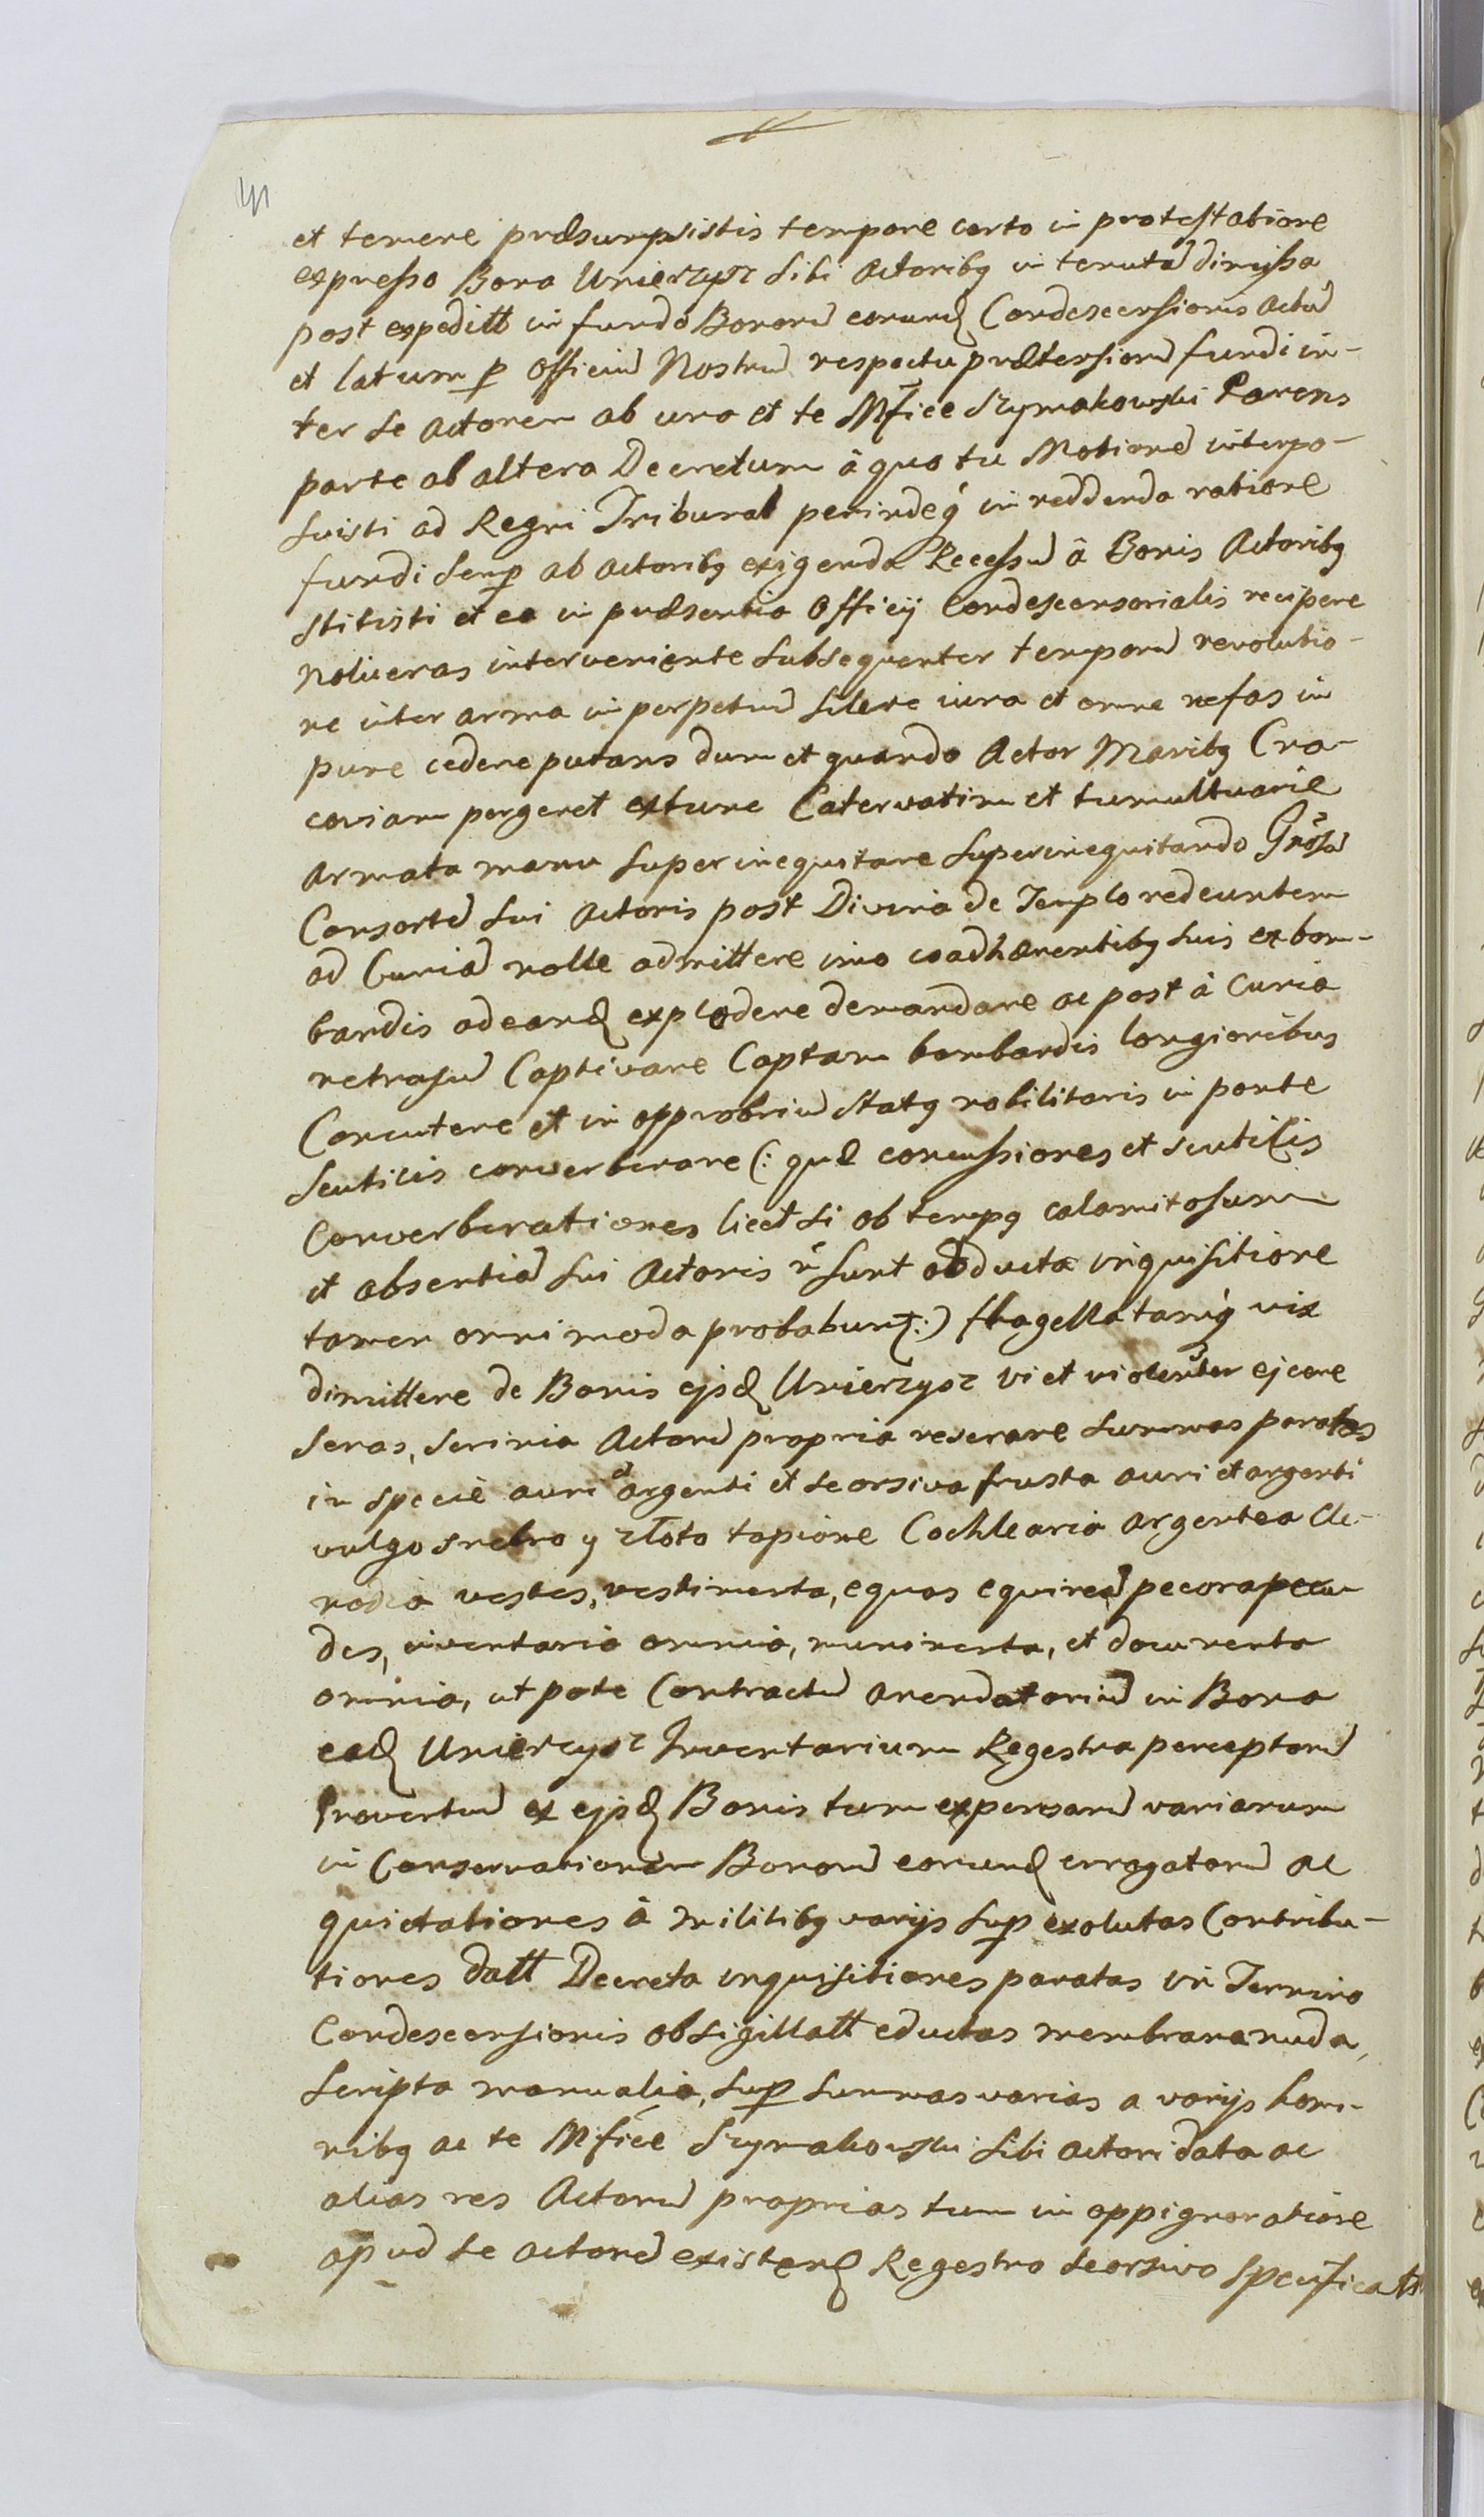 et temere præsumpsistis tempore certo in protestatione
expresso Bona Unierzysz sibi Actoribq in tenutã dimissa
post expeditt in fundo Bonorũ eorund Condescensionis actũ
et latum p Officiũ Nostrũ respectu prætensionũ fundi in-
ter se Actorem ab una et te Mfice Szymakowski Parens
parte ab altera Decretum â quo tu Motionẽ interpo-
suisti ad Regni Tribunal perindeq́ in reddenda ratione
fundi semp ab actoribq exigenda Recessũ â Bonis Actoribq
stitisti et ea in præsentia Officij Condescensorialis recipere
nolueras interveniente subsequenter temporũ revolutio-
ne inter arma in perpetuũ silere iura et omne nefas in
pure cedere putans dum et quando Actor Maribq Cra-
coviam pergeret extunc Catervatim et tumultuarie
armata manu superinequitare superinequitando Gnosã
Consortẽ sui Actoris post Divina de Templo redeuntem
ad Curiã nolle admittere imo coadhærentibq suis ex bom-
bardis ad eand explodere demandare ac post â Curia
retrasũ Captivare Captam bombardis longioribus
Concutere et in opprobriũ statq nobilitaris in ponte
scuticis converberare (: quæ concussiones et scuticis
Converberationes licet si ob tempq calamitosum
et absentiã sui Actoris ñ sunt obductæ inquisitione
tamen omnimoda probabunt :) flagellatamq́ vix
dimittere de Bonis ejsd Unierzysz vi et violenter ejcere
seras, scrinia Actorũ propria reserare summas paratas
in specie auri et argenti et seorsiva frusta auri et argenti
vulgo srebro y złoto topione Cochlearia argentea Cle-
nodia vestes, vestimenta, equos equireã pecora pecu-
des, inventaria omnia, munimenta, et documenta
omnia, utpote Contractũ arendatoriũ in Bona
ead Unierzysz Inventarium Regestra perceptorũ
Proventuũ ex ejsd Bonis tum expensarũ variarum
in Conservationem Bonorũ eorund errogatorũ ac
quietationes â Militibq varijs sup exolutas Contribu-
tiones datt Decreta inquisitiones paratas in Termino
Condescensionis obsigillatt eductas membrana nuda,
scripta manualia, sup summas varias a varijs homi-
nibq ac te Mfice Szymakowski sibi actori data ac
alias res Actorũ proprias tum in oppignoratione
apud se actorẽ existend Regestro seorsivo specificatt